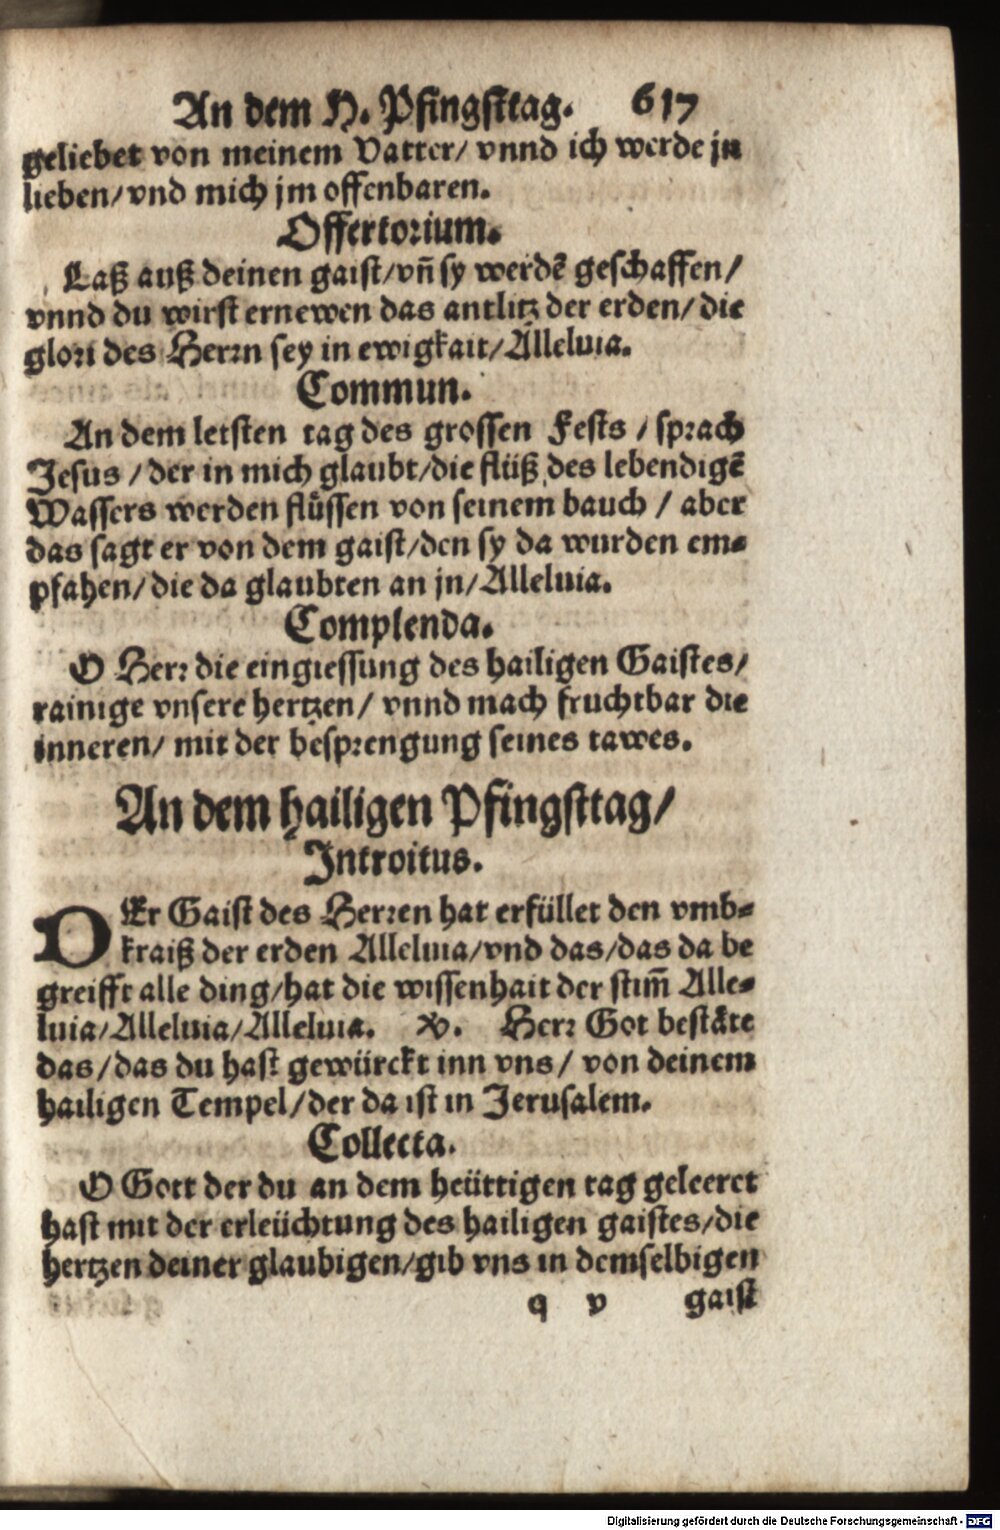 An dem H. Pfingsttag. 617
geliebet von meinem Vatter/ vnnd ich werde jn
lieben/ vnd mich jm offenbaren.
Offertorium.
Laß auß deinen gaist/ vñ sy werdē geschaffen/
vnnd du wirst ernewen das antlitz der erden/ die
glori des Herrn sey in ewigkait/ Alleluia.
Commun.
An dem letsten tag des grossen Fests / sprach
Jesus / der in mich glaubt/ die flüß des lebendigē
Wassers werden flüssen von seinem bauch / aber
das sagt er von dem gaist/ den sy da wurden em-
pfahen/ die da glaubten an jn/ Alleluia.
Complenda.
O Herr die eingiessung des hailigen Gaistes/
rainige vnsere hertzen/ vnnd mach fruchtbar die
inneren/ mit der besprengung seines tawes.
An dem hailigen Pfingsttag/
Introitus.
DEr Gaist des Herren hat erfüllet den vmb-
kraiß der erden Alleluia/ vnd das/ das da be
greifft alle ding/ hat die wissenhait der stim̄ Alle-
luia/ Alleluia/ Alleluia. ℣. Herr Got bestäte
das/ das du hast gewürckt inn vns/ von deinem
hailigen Tempel/ der da ist in Jerusalem.
Collecta.
O Gott der du an dem heüttigen tag geleeret
hast mit der erleüchtung des hailigen gaistes/ die
hertzen deiner glaubigen/ gib vns in demselbigen
q v gaist
Digitalisierung gefördert durch die Deutsche Forschungsgemeinschaft - DFG